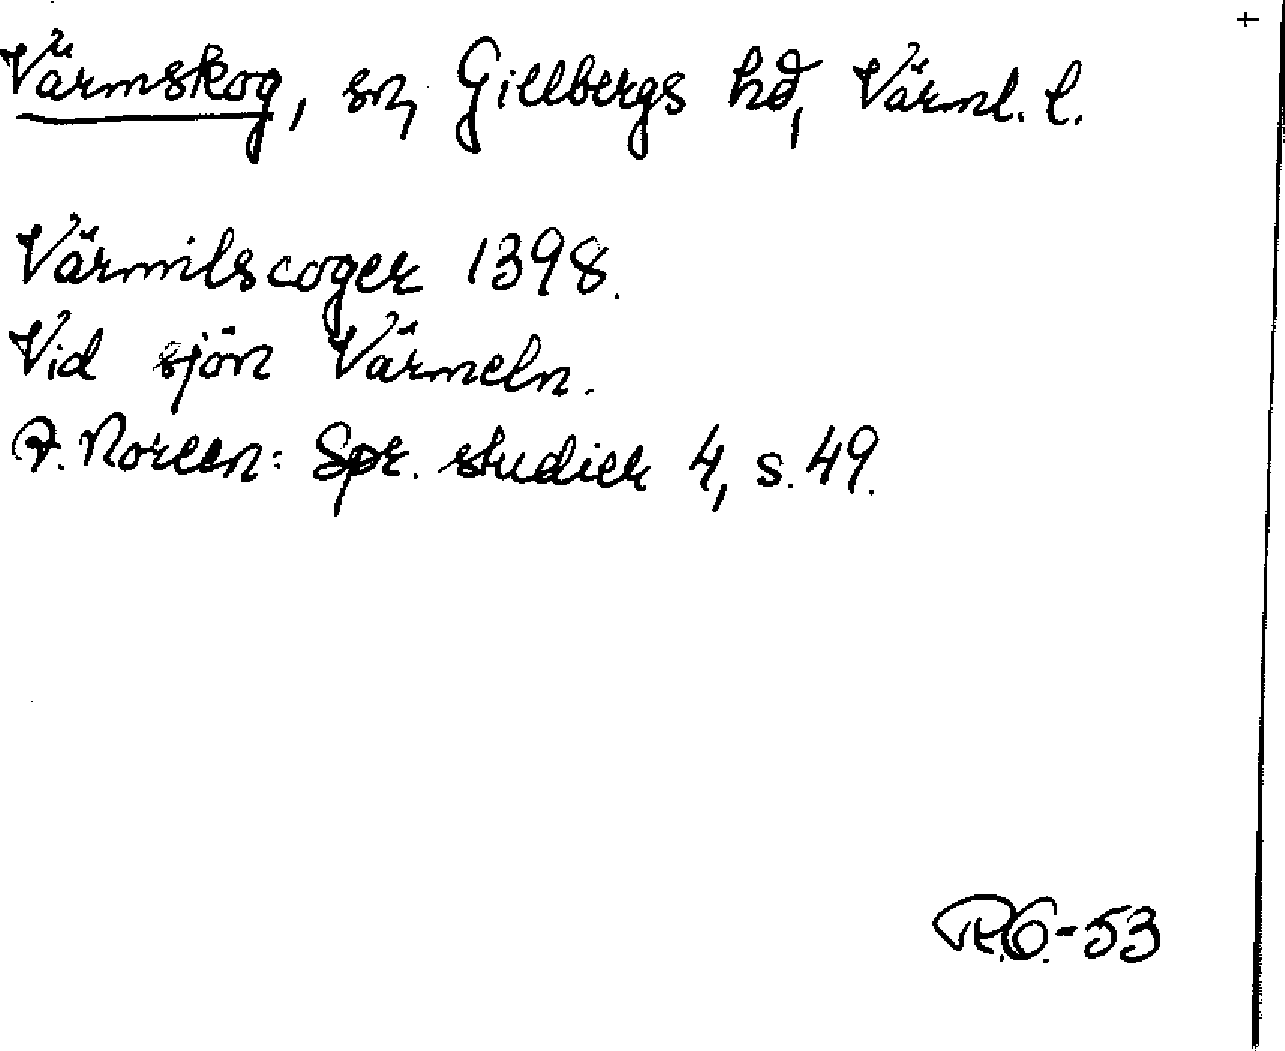 Värmskog, sn, Gillbergs hd, Värml. l.
Värmilscoger 1398.
Vid sjön Värmeln.
A. Noreen: Spr. studier 4, s. 49.
R.Ö.-53